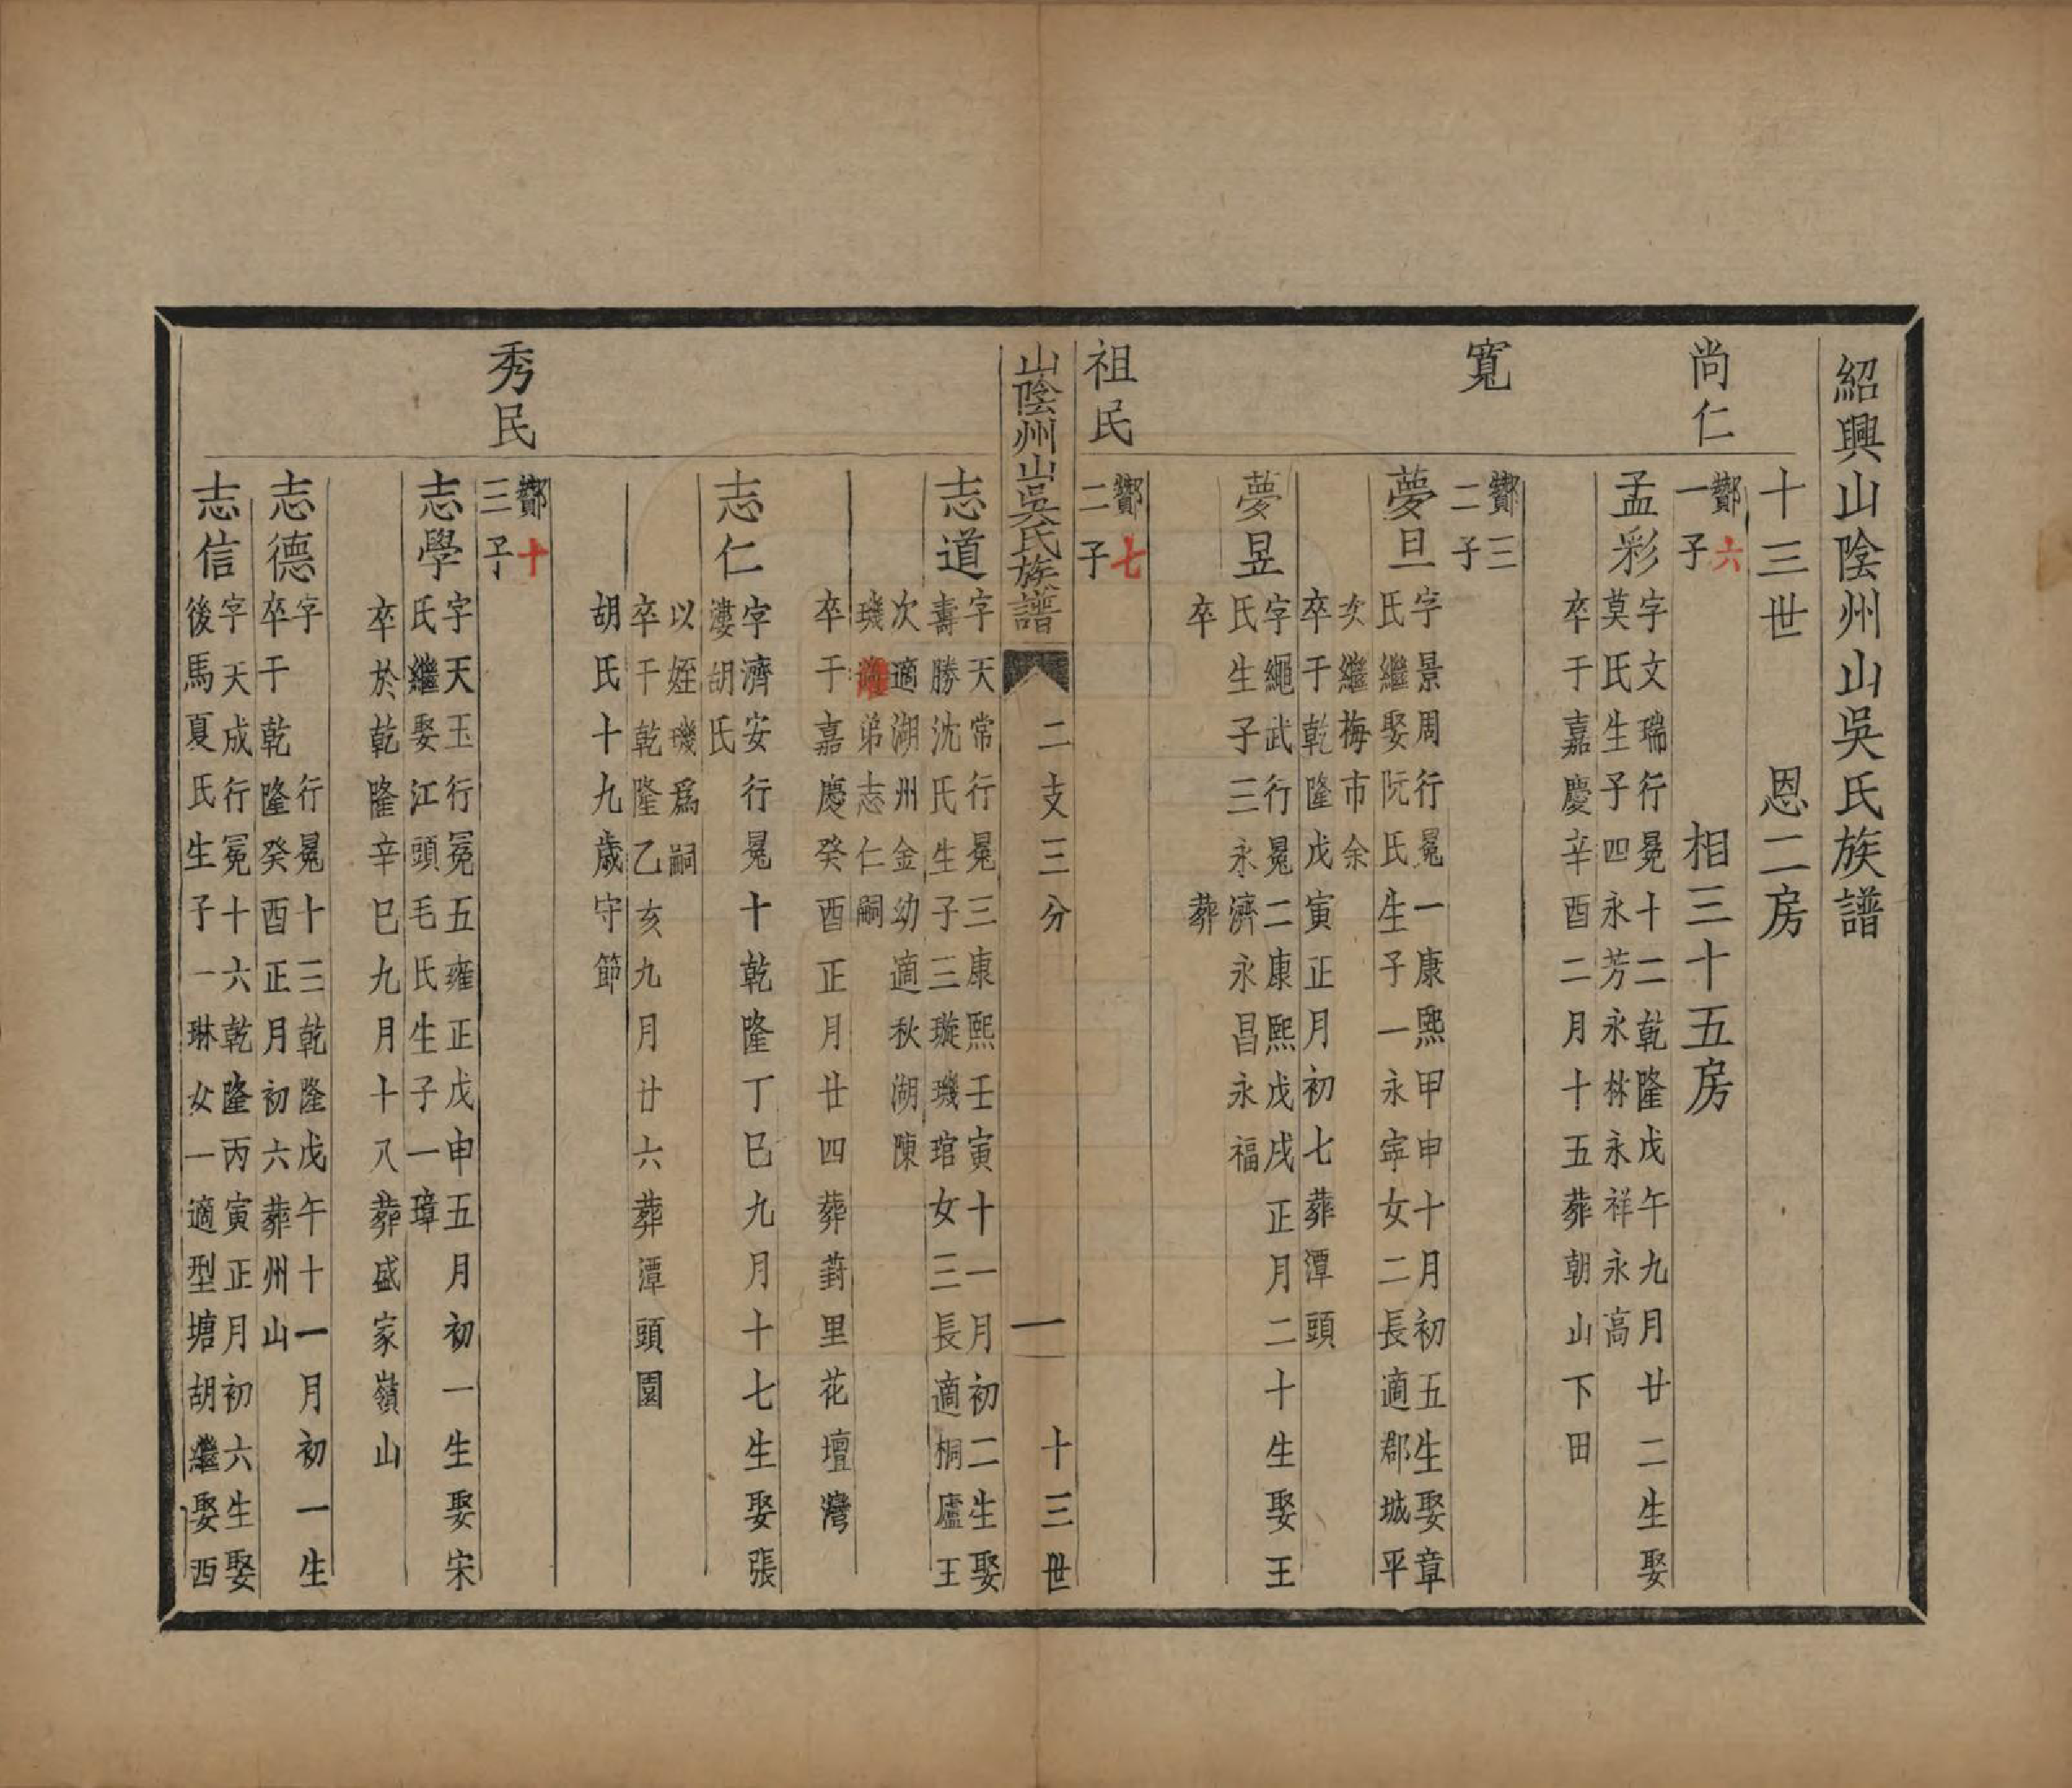 紹興山陰州山吳氏族譜
十三世　恩二房
相三十五房
尚仁
鄼六
一子
孟彩
字文瑞行冕十二乾隆戊午九月廿二生娶
莫氏生子四永芳永林永祥永高
卒于嘉慶辛酉二月十五葬朝山下田
寬
鄼三
二子
夢旦
字景周行冕一康熙甲申十月初五生娶章
氏繼娶阮氏生子一永寧女二長適郡城平
次繼梅市余
卒于乾隆戊寅正月初七葬潭頭
夢昱
字繩武行冕二康熙戊戌正月二十生娶王
氏生子三永濟永昌永福
卒　葬
祖民
鄼七
二子
山陰州山吳氏族譜
二支三分
一
十三世
志道
字天常行冕三康熙壬寅十一月初二生娶
壽勝沈氏生子三璇璣琯女三長適桐廬王
次適湖州金幼適秋湖陳
璣弟志仁嗣
卒于嘉慶癸酉正月廿四葬葑里花壇灣
志仁
字濟安行冕十乾隆丁巳九月十七生娶張
漊胡氏
以姪璣爲嗣
卒于乾隆乙亥九月廿六葬潭頭園
胡氏十九歲守節
秀民
鄼十
三子
志學
字天玉行冕五雍正戊申五月初一生娶宋
氏繼娶江頭毛氏生子一璋
卒於乾隆辛巳九月十八葬盛家嶺山
志德
字　行冕十三乾隆戊午十一月初一生
卒于乾隆癸酉正月初六葬州山
志信
字天成行冕十六乾隆丙寅正月初六生娶
後馬夏氏生子一琳女一適型塘胡繼娶西